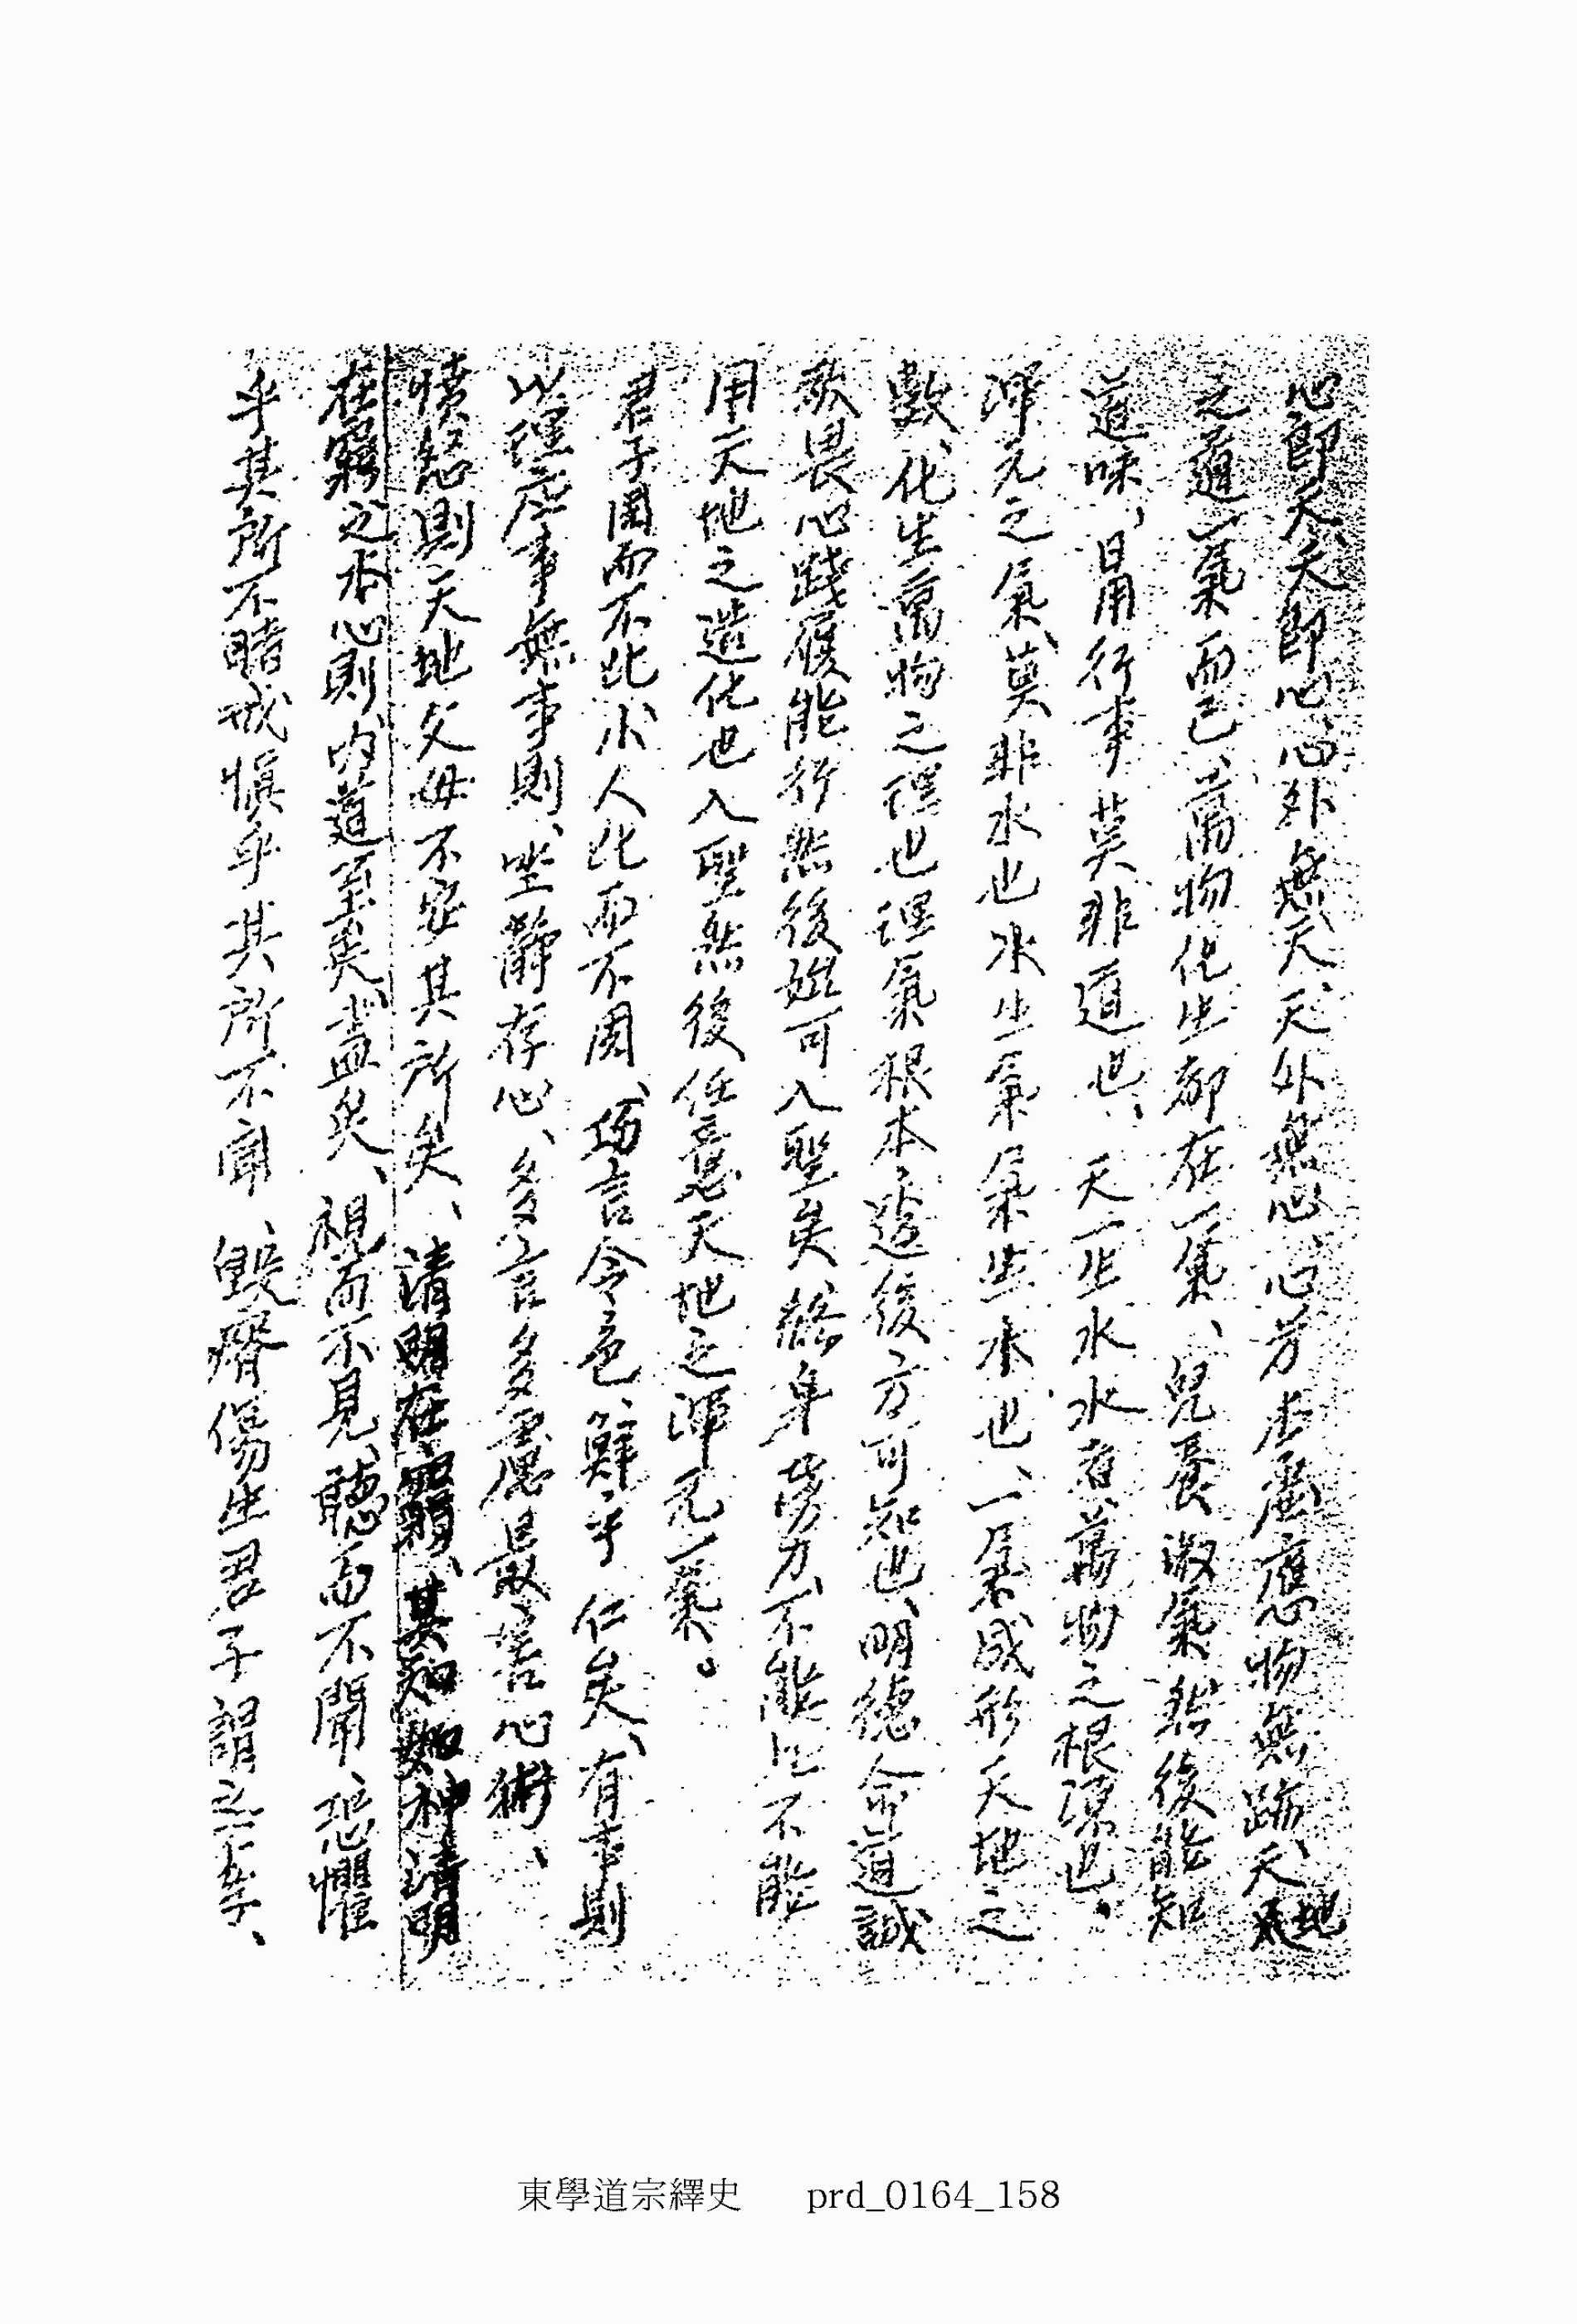 心卽天天卽心心外無天天外無心心芳本虛應物無跡天地
之道一氣而已萬物化生都在一氣、兒養淑氣然後能知
道味、日用行事莫非道也、天一生水水者萬物之根源也、
渾元之氣莫非水也水生氣氣生水也、一氣成形天地之
數、化生萬物之理也理氣根本透後方可知也、明德命道誠
敬畏心踐履能行然後始可入聖矣 身勞力、不能比不能
用天地之造化也入聖然後任意天地之渾元一氣。
君子周而不比小人比而不周、巧言令色、鮮乎仁矣、有事則
以理應事無事則、坐靜存心、多言多慮最害心術、
憤怒則天地父母不安其所矣、清明在躬、其知如神清明
在躬之本心則、內道至矣、盡矣、視而不見、聽而不聞、恐懼
乎其所不睹戒愼乎其所不聞、毀瘠傷生君子謂之不孝、
東學道宗繹史 prd_0164_158